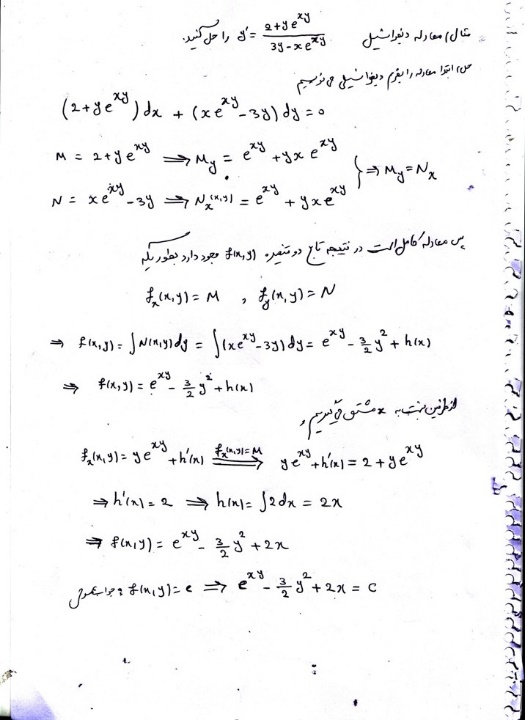 مثال) معادله دیفرانسیل y' = \frac{2+ye^{xy}}{3y-xe^{xy}} را حل کنید.
حل: ابتدا معادله را بفرم دیفرانسیلی می نویسیم
(2+ye^{xy})dx + (xe^{xy}-3y)dy = 0
M = 2+ye^{xy} ⟹ M_y = e^{xy} + yx e^{xy}
N = xe^{xy}-3y ⟹ N_x(x,y) = e^{xy} + yxe^{xy} } ⟹ M_y = N_x
پس معادله کامل است در نتیجه تابع دو متغیره f(x,y) وجود دارد بطوریکه
f_x(x,y) = M , f_y(x,y) = N
⟹ f(x,y) = ∫N(x,y)dy = ∫(xe^{xy}-3y)dy = e^{xy} - \frac{3}{2}y^2 + h(x)
⟹ f(x,y) = e^{xy} - \frac{3}{2}y^2 + h(x)
از طرفین نسبت به x مشتق می گیریم
f_x(x,y) = ye^{xy} + h'(x) \xRightarrow{f_x(x,y)=M} ye^{xy} + h'(x) = 2 + ye^{xy}
⟹ h'(x) = 2 ⟹ h(x) = ∫2dx = 2x
⟹ f(x,y) = e^{xy} - \frac{3}{2}y^2 + 2x
جواب عمومی f(x,y) = c ⟹ e^{xy} - \frac{3}{2}y^2 + 2x = C